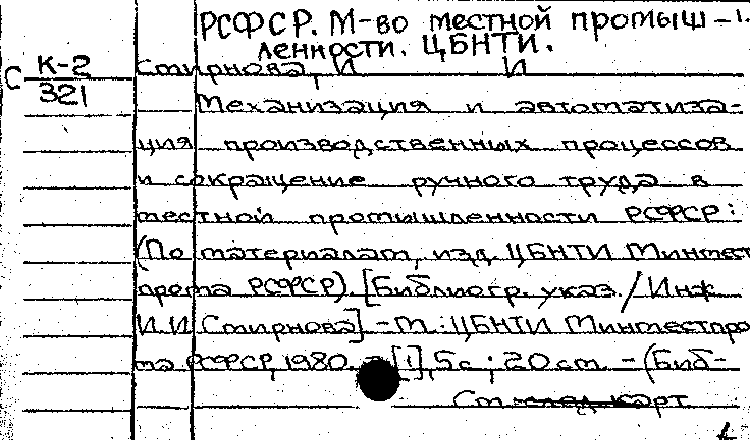 РСФСР. М-во местной промыш-
ленности. ЦБНТИ.
С К-2
321
Смирнова, И И
Механизация и автоматиза-
ция производственных процессов
и сокращение ручного труда в
местной промышленности РСФСР:
(По материалам, изд. ЦБНТИ Минмест
прома РСФСР). [Библиогр. указ. / Инж
И.И. Смирнова] - М.: ЦБНТИ Минместпро
ма РСФСР, 1980. - [1], 5 с ; 20 см. - (Биб-
См. след. карт